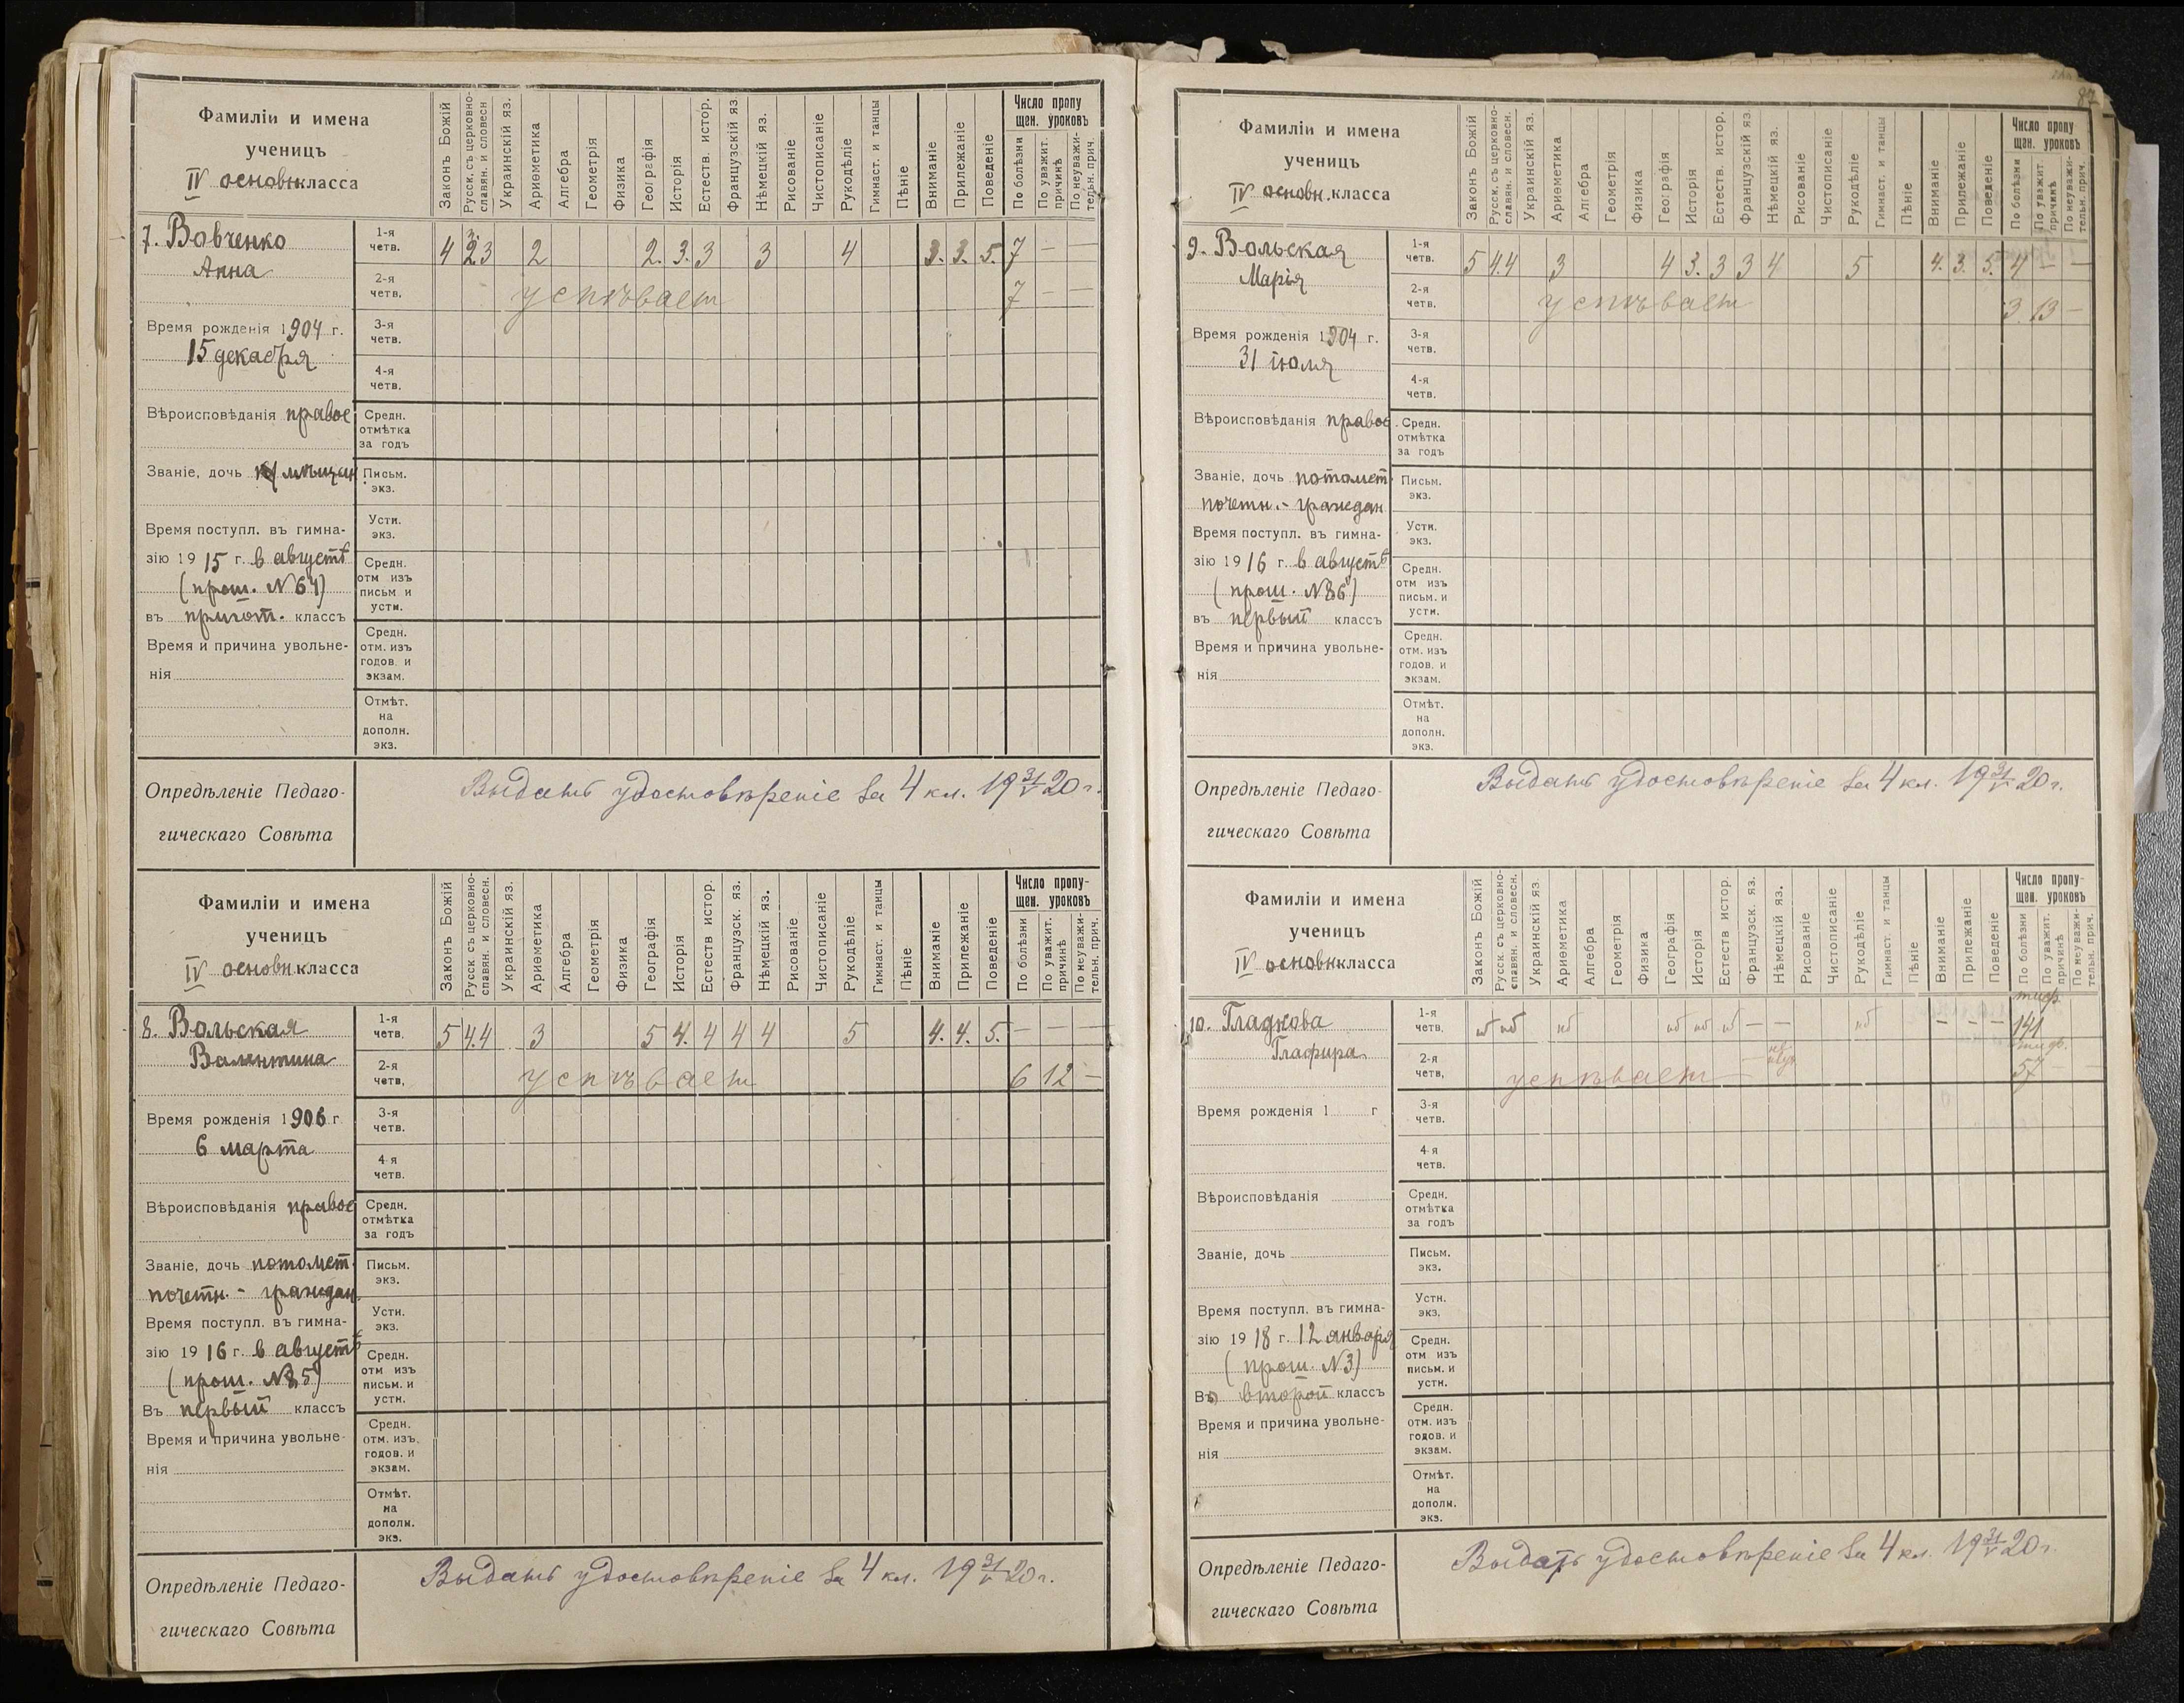 82
Фамиліи и имена
ученицъ
IV основн. класса
Законъ Божій
Русск. съ церковно-
славян. и словесн
Украинскій яз.
Ариѳметика
Алгебра
Геометрія
Физика
Географія
Исторія
Естеств. истор.
Французскій яз.
Нѣмецкій яз.
Рисованіе
Чистописаніе
Рукодѣліе
Гимнаст. и танцы
Пѣніе
Вниманіе
Прилежаніе
Поведеніе
Число пропу
щен. уроковъ
По болѣзни
По уважит.
причинѣ
По неуважи-
тельн. прич.
7. Вовченко
Анна
1-я четв. 4 2 3 2 2. 3. 3 3 4 3. 3. 5. 7 — —
2-я четв. успѣваетъ 7 — —
3-я четв.
4-я четв.
Время рожденія 1904 г.
15 декабря
Вѣроисповѣданія правос
Средн. отмѣтка за годъ
Званіе, дочь мѣщан
Письм. экз.
Устн. экз.
Время поступл. въ гимна-
зію 1915 г. в августѣ
(прош. N 64)
въ пригот. классъ
Средн. отм изъ письм и устн.
Время и причина увольне-
нія
Средн. отм. изъ годов. и экзам.
Отмѣт. на дополн. экз.
Опредѣленіе Педаго-
гическаго Совѣта
Выдать удостовѣреніе за 4 кл. 19 31/V 20 г.
Фамиліи и имена
ученицъ
IV основн. класса
Законъ Божій
Русск. съ церковно-
славян. и словесн.
Украинскій яз.
Ариѳметика
Алгебра
Геометрія
Физика
Географія
Исторія
Естеств истор.
Французск. яз.
Нѣмецкій яз.
Рисованіе
Чистописаніе
Рукодѣліе
Гимнаст. и танцы
Пѣніе
Вниманіе
Прилежаніе
Поведеніе
Число пропу-
щен. уроковъ
По болѣзни
По уважит.
причинѣ
По неуважи-
тельн. прич.
8. Вольская
Валентина
1-я четв. 5 4.4 3 5 4. 4 4 4 5 4. 4. 5. — — —
2-я четв. успѣваетъ 6 12 —
3-я четв.
4-я четв.
Время рожденія 1906 г
6 марта
Вѣроисповѣданія правос
Средн. отмѣтка за годъ
Званіе, дочь потомст.
почетн. - граждан
Письм. экз.
Устн. экз.
Время поступл. въ гимна-
зію 1916 г. в августѣ
(прош. N 85)
Въ первый классъ
Средн. отм изъ письм. и устн.
Время и причина увольне-
нія
Средн. отм. изъ. годов. и экзам.
Отмѣт. на дополн. экз.
Опредѣленіе Педаго-
гическаго Совѣта
Выдать удостовѣреніе за 4 кл. 19 31/V 20 г.
Фамиліи и имена
ученицъ
IV основн. класса
Законъ Божій
Русск. съ церковно-
славян. и словесн.
Украинскій яз.
Ариѳметика
Алгебра
Геометрія
Физика
Географія
Исторія
Естеств. истор.
Французскій яз.
Нѣмецкій яз.
Рисованіе
Чистописаніе
Рукодѣліе
Гимнаст. и танцы
Пѣніе
Вниманіе
Прилежаніе
Поведеніе
Число пропу
щен. уроковъ
По болѣзни
По уважит.
причинѣ
По неуважи-
тельн. прич.
9. Вольская
Марія
1-я четв. 5 4.4 3 4 3. 3 3 4 5 4. 3. 5. 4 — —
2-я четв. успѣваетъ 3 13 —
3-я четв.
4-я четв.
Время рожденія 1904 г.
31 іюля
Вѣроисповѣданія правос
Средн. отмѣтка за годъ
Званіе, дочь потомст
почетн. - граждан
Письм. экз.
Устн. экз.
Время поступл. въ гимна-
зію 1916 г. в августѣ
(прош. N 86)
въ первый классъ
Средн. отм изъ письм. и устн.
Время и причина увольне-
нія
Средн. отм. изъ годов. и экзам.
Отмѣт. на дополн. экз.
Опредѣленіе Педаго-
гическаго Совѣта
Выдать удостовѣреніе за 4 кл. 19 31/V 20 г.
Фамиліи и имена
ученицъ
IV основн. класса
Законъ Божій
Русск. съ церковно-
славян. и словесн.
Украинскій яз.
Ариѳметика
Алгебра
Геометрія
Физика
Географія
Исторія
Естеств истор.
Французск. яз.
Нѣмецкій яз.
Рисованіе
Чистописаніе
Рукодѣліе
Гимнаст. и танцы
Пѣніе
Вниманіе
Прилежаніе
Поведеніе
Число пропу-
щен. уроковъ
По болѣзни
По уважит.
причинѣ
По неуважи-
тельн. прич.
10. Гладкова
Глафира
1-я четв. нб нб нб нб нб нб — — нб — — — тиф. 141
2-я четв. успѣваетъ — 57 — —
3-я четв.
4-я четв.
Время рожденія 1 г
Вѣроисповѣданія
Средн. отмѣтка за годъ
Званіе, дочь
Письм. экз.
Устн. экз.
Время поступл. въ гимна-
зію 1918 г. 12 января
(прош. N 3)
Въ второй классъ
Средн. отм изъ письм. и устн.
Время и причина увольне-
нія
Средн. отм. изъ годов. и экзам.
Отмѣт. на дополн. экз.
Опредѣленіе Педаго-
гическаго Совѣта
Выдать удостовѣреніе за 4 кл. 19 31/V 20 г.